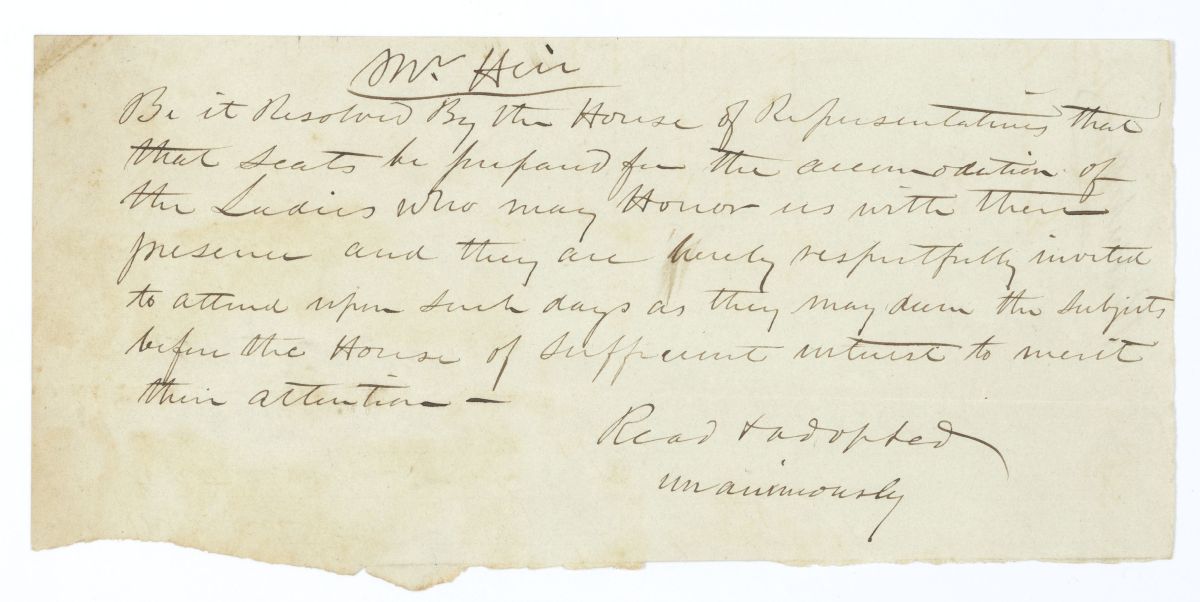 Mr. Hill
Be it Resolved By the House of Representatives that
that seats be prepared for the accomodation of
the Ladies who may Honor us with their
presence and they are hereby respectfully invited
to attend upon such days as they may deem the subjects
before the House of sufficient interest to merit
their attention —
Read & adopted
unanimously